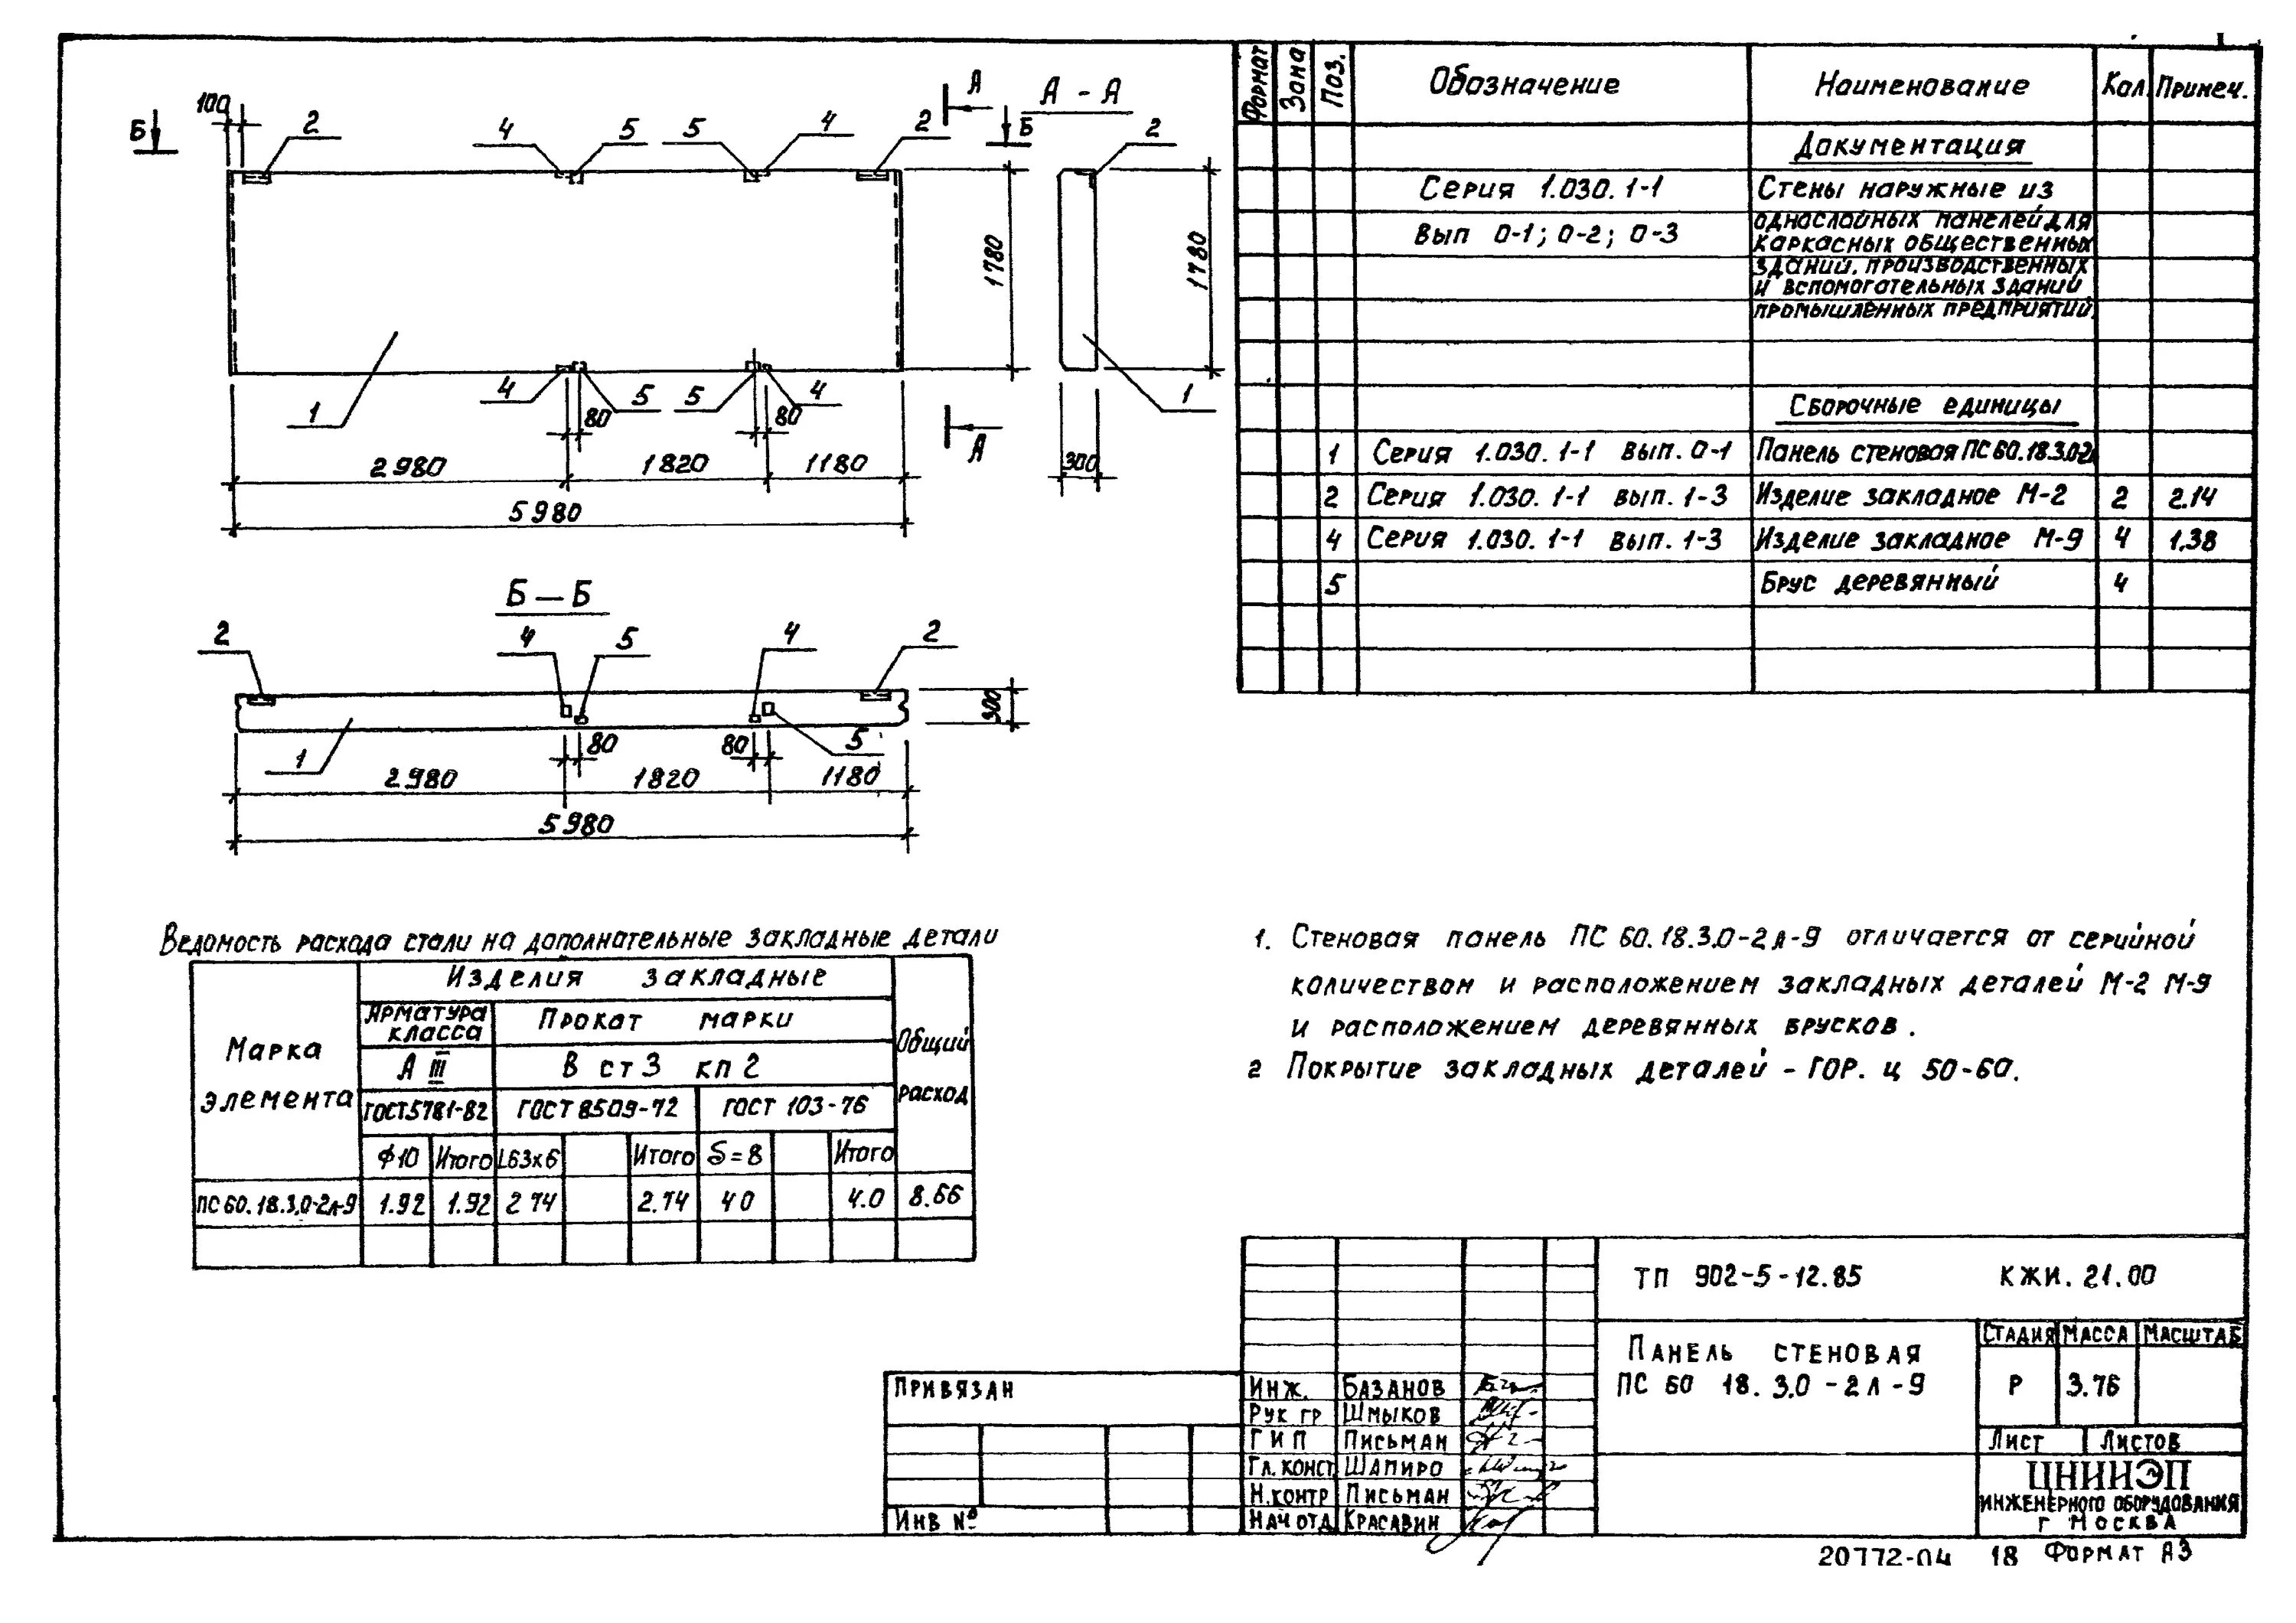 100
Б
2
4
5
5
4
2
А
Б
А - А
2
1780
1780
1
4
5
5
4
80
80
А
1
2980
1820
1180
5980
300
Б — Б
2
4
5
4
2
300
1
80
80
5
2980
1820
1180
5980
Формат
Зона
Поз.
Обозначение
Наименование
Кол.
Примеч.
Документация
Серия 1.030.1-1
Стены наружные из
Вып 0-1; 0-2; 0-3
однослойных панелей для
каркасных общественных
зданий, производственных
и вспомогательных зданий
промышленных предприятий.
Сборочные единицы
1 Серия 1.030.1-1 вып. 0-1 Панель стеновая ПС 60.18.3.0-2л
2 Серия 1.030.1-1 вып. 1-3 Изделие закладное М-2 2 2.14
4 Серия 1.030.1-1 вып. 1-3 Изделие закладное М-9 4 1,38
5 Брус деревянный 4
Ведомость расхода стали на дополнательные закладные детали
Марка элемента
Изделия закладные
Общий расход
Арматура класса
Прокат марки
А III
В ст 3 кп 2
ГОСТ 5781-82
ГОСТ 8509-72
ГОСТ 103-76
ф10 Итого L63х6 Итого δ=8 Итого
ПС 60.18.3,0-2л-9 1.92 1.92 2 74 2.74 4 0 4.0 8.66
1. Стеновая панель ПС 60.18.3.0-2л-9 отличается от серийной
количеством и расположением закладных деталей М-2 М-9
и расположением деревянных брусков.
2 Покрытие закладных деталей - ГОР. ц 50-60.
ТП 902-5-12.85 КЖИ.21.00
Панель стеновая
ПС 60 18.3.0-2л-9
Стадия Масса Масштаб
Р 3.76
Лист Листов
ЦНИИЭП
инженерного оборудования
г Москва
Привязан
Инв №
Инж. Базанов
Рук гр Шмыков
ГИП Письман
Гл. конст. Шапиро
Н.контр Письман
Нач отд Красавин
20772-04 18 Формат А3